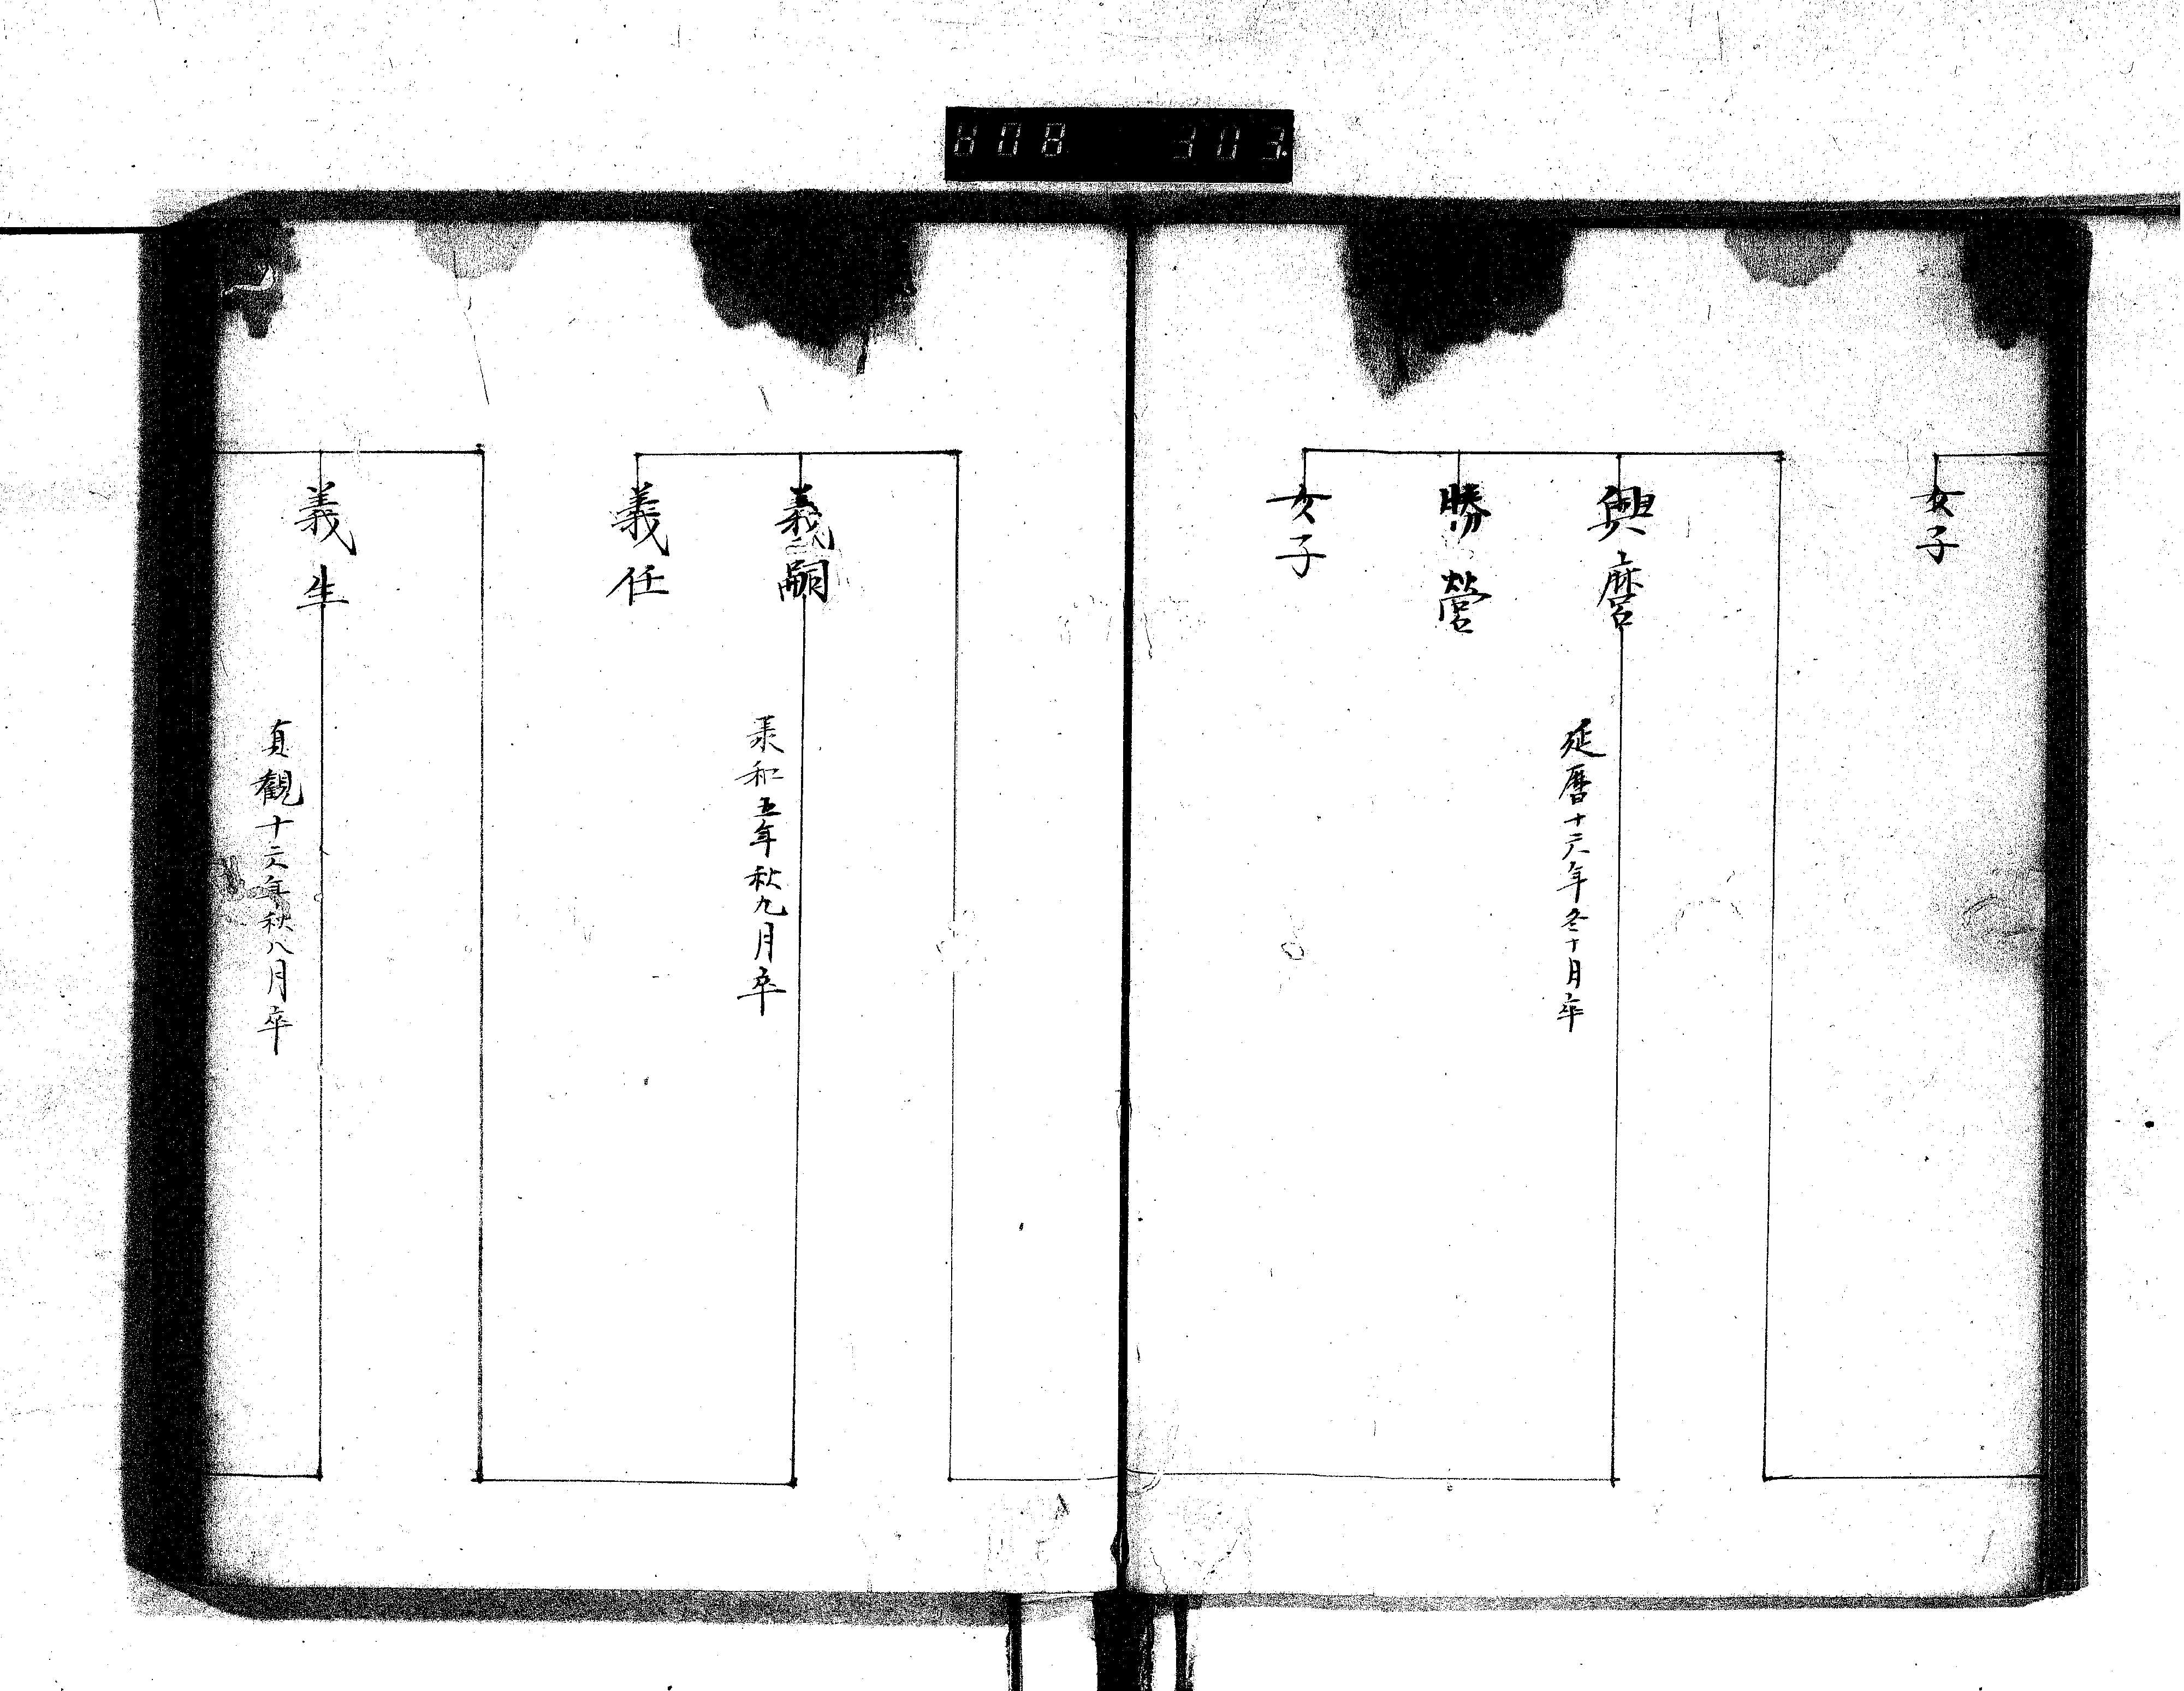 608 303
女子
興麿
延暦十六年冬十月卒
勝営
女子
義嗣
承和五年秋九月卒
義任
義生
貞観十六年秋八月卒